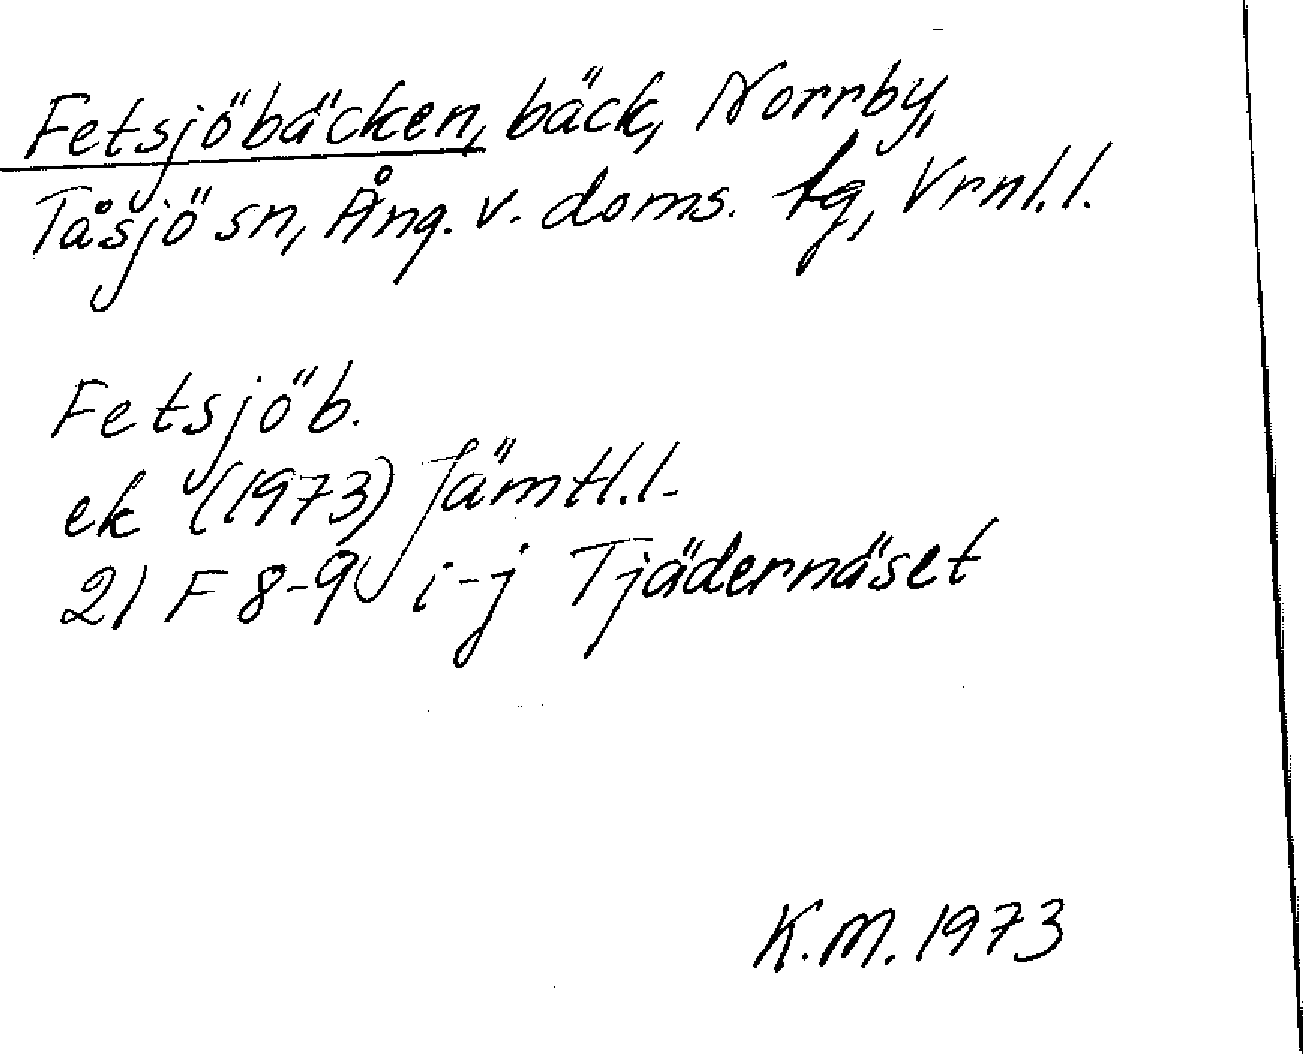 Fetsjöbäcken, bäck, Norrby,
Tåsjö sn, Ång. v. doms. tg, Vrnl.l.
Fetsjöb.
ek (1973) Jämtl.l.
21 F 8-9 i-j Tjädernäset
K.M. 1973